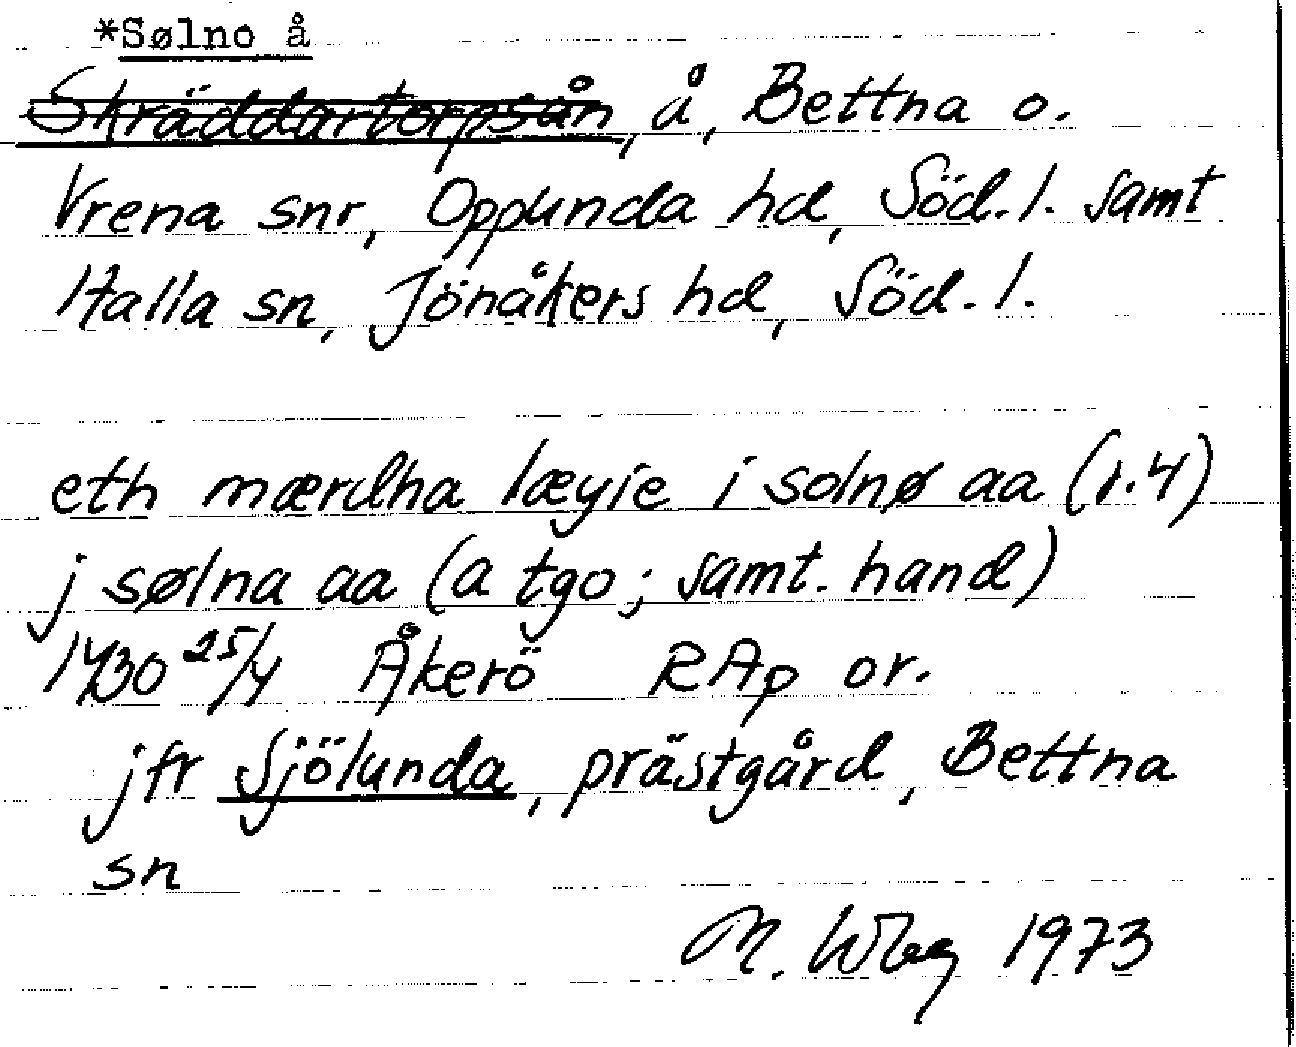 *Sølno å
Skräddartorpsån, å, Bettna o.
Vrena snr, Oppunda hd, Söd. l. samt
Halla sn, Jönåkers hd, Söd. l.
eth mærdha læyie i solnø aa (r.4)
j sølna aa (a tgo; samt. hand)
1430 25/4 Åkerö RAp or.
jfr Sjölunda, prästgård, Bettna
sn
M. 1973